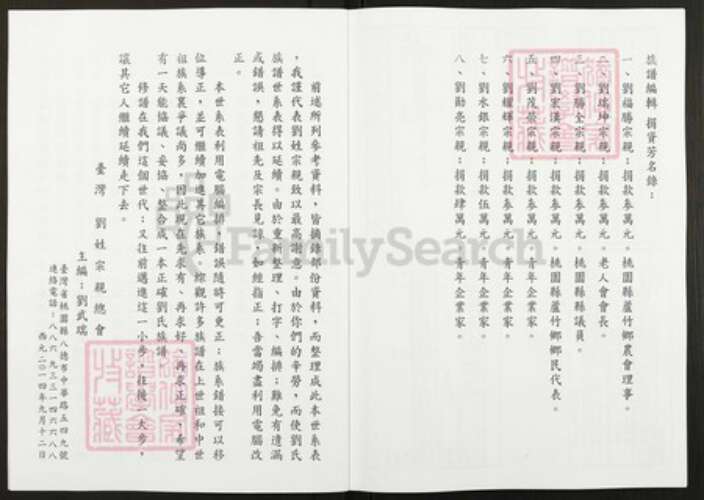 族譜編輯 捐資芳名錄：
一、劉福勝宗親：捐款參萬元。桃園縣蘆竹鄉農會理事。
二、劉瑞坤宗親：捐款參萬元。老人會會長。
三、劉勝全宗親：捐款參萬元。桃園縣縣議員。
四、劉宏漢宗親：捐款參萬元。桃園縣蘆竹鄉鄉民代表。
五、劉茂榮宗親：捐款參萬元。青年企業家。
六、劉耀輝宗親：捐款參萬元。青年企業家。
七、劉水銀宗親：捐款伍萬元。青年企業家。
八、劉勛亮宗親：捐款肆萬元。青年企業家。
前述所列參考資料，皆摘錄部份資料，而整理成此本世系表
，我謹代表劉姓宗親致以最高謝意。由於你們的辛勞，而使劉氏
族譜世系表得以延續。由於重新整理、打字、編排；難免有遺漏
或錯誤，懇請祖先及宗長見諒；如經指正；吾當竭盡利用電腦改
正。
本世系表利用電腦編排，錯誤隨時可更正；族系錯接可以移
位導正，並可繼續加進其它族系，綜觀許多族譜在上世祖和中世
祖族系裏爭議尚多，因此現在先求有、再求好、再求正確，希望
有一天能協議、妥協、整合成一本正確劉氏族譜。
修譜在我們這個世代；又往前邁進這一小步，往後一大步，
讓其它人繼續延續走下去。
臺灣 劉姓宗親總會
主編：劉武瑞
臺灣省桃園縣八德市中華路五四九號
連絡電話：八八六 九三三一四六六八八
西元二○一四年九月十二日
FamilySearch